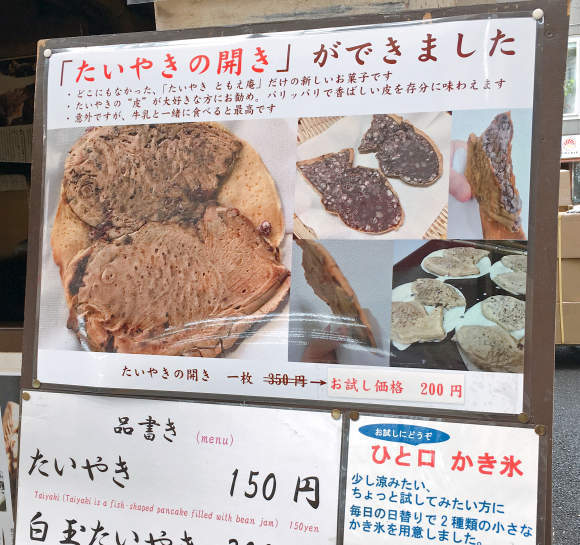 「たいやきの開き」ができました
・どこにもなかった、「たいやき ともえ庵」だけの新しいお菓子です
・たいやきの“皮”が大好きな方にお勧め。パリッパリで香ばしい皮を存分に味わえます
・意外ですが、牛乳と一緒に食べると最高です
たいやきの開き 一枚 350円→お試し価格 200円
品書き (menu)
たいやき 150円
Taiyaki (Taiyaki is a fish-shaped pancake filled with bean jam) 150yen
白玉たいやき
お試しにどうぞ
ひと口 かき氷
少し涼みたい、
ちょっと試してみたい方に
毎日の日替りで2種類の小さな
かき氷を用意しました。